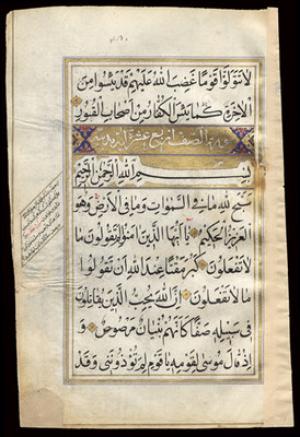 لا تتولوا قوما غضب الله عليهم قد يئسوا من
الاخرة كما يئس الكفار من اصحاب القبور
سورة الصف اربع عشر اية
بسم الله الرحمن الرحيم
سبح لله ما في السموات وما في الارض وهو
العزيز الحكيم يا ايها الذين امنوا لم تقولون ما
لا تفعلون كبر مقتا عند الله ان تقولوا
ما لا تفعلون ان الله يحب الذين يقاتلون
في سبيله صفا كانهم بنيان مرصوص و
اذ قال موسى لقومه يا قوم لم تؤذونني وقد